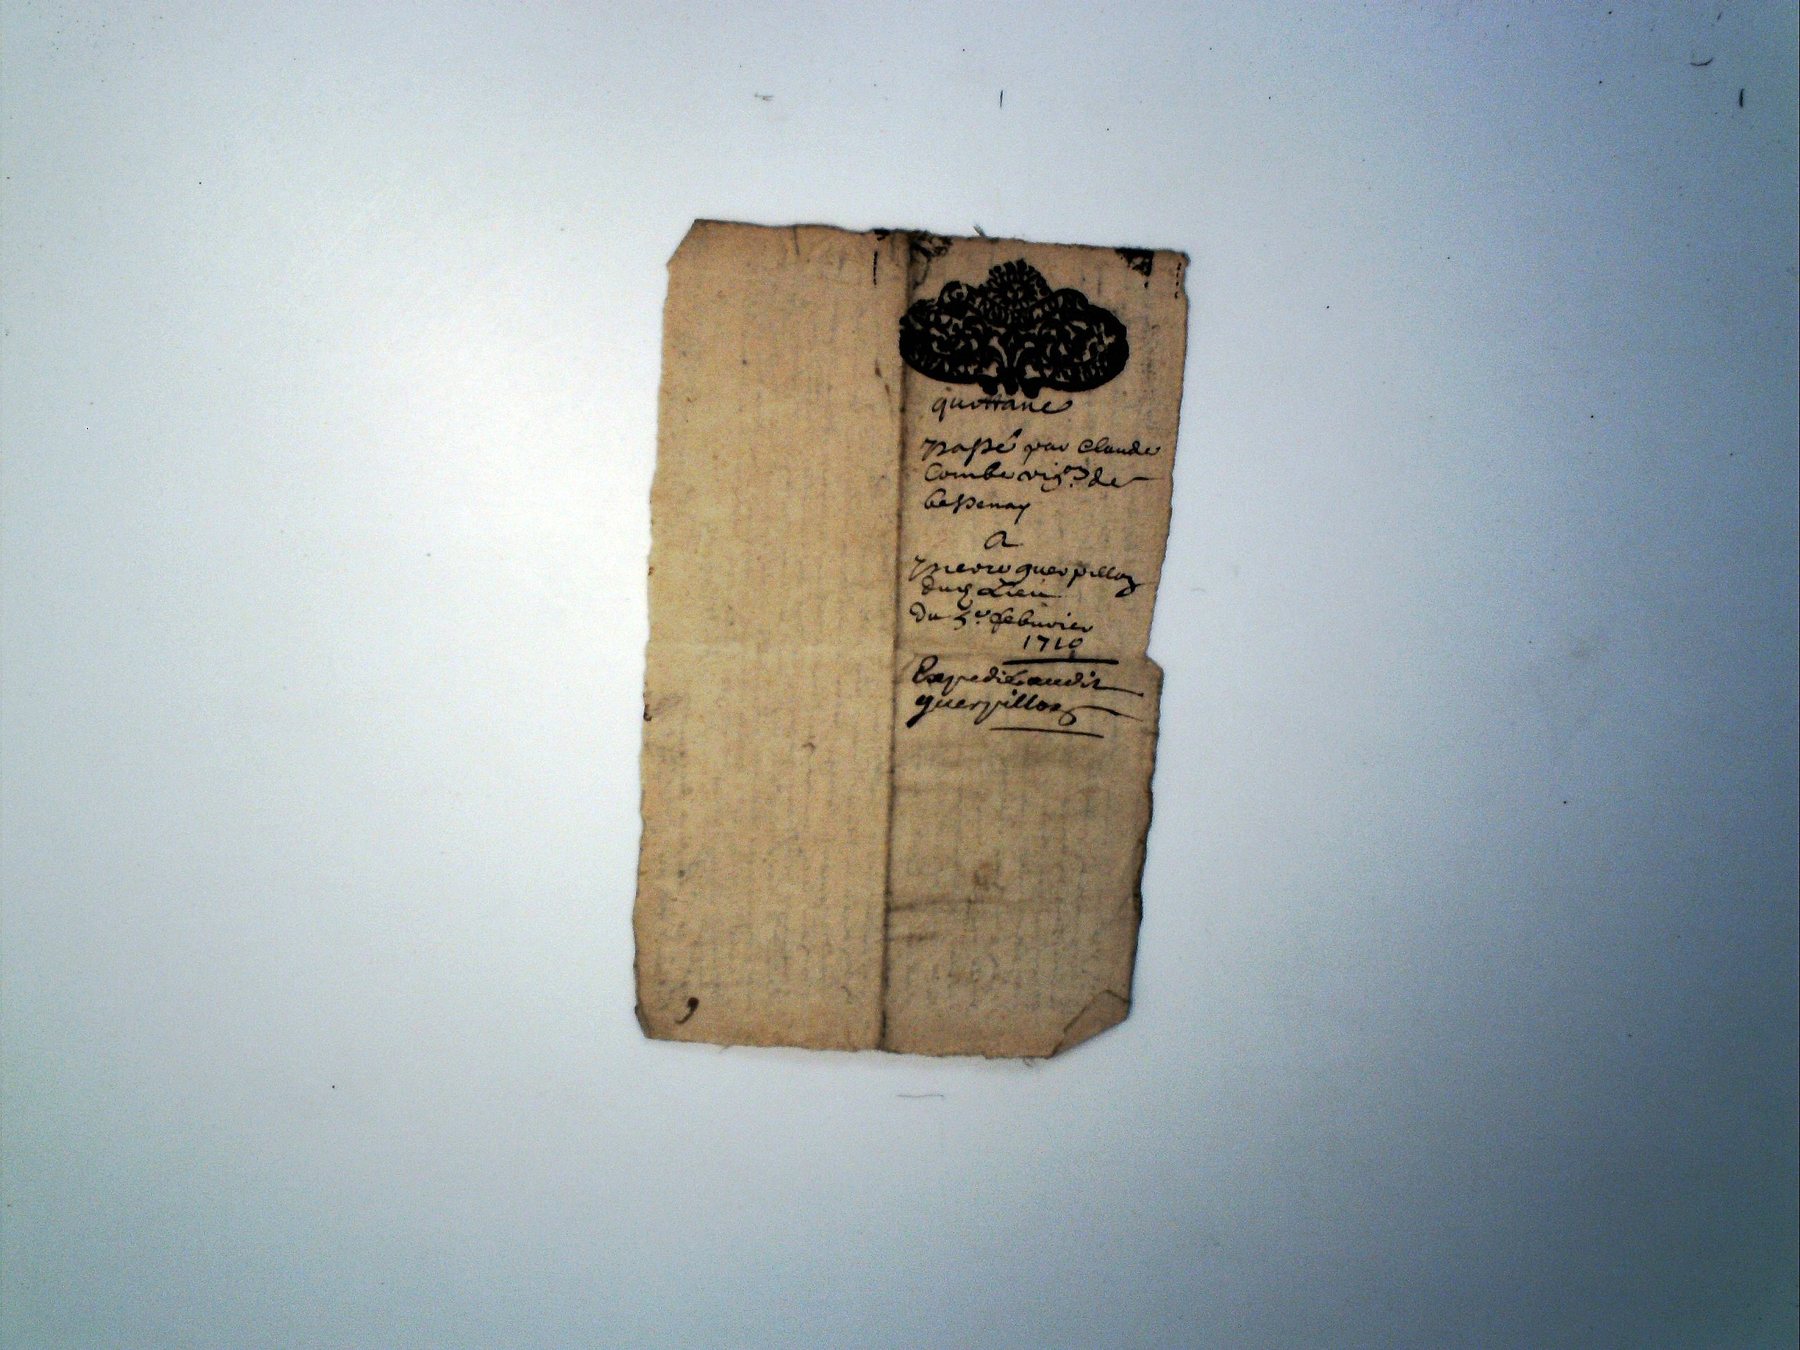 quittance
passé par Claude
Combe vig.on de
bessenay
A
pierre guerpillon
dud Lieu
du 5.e febvrier
1710
Expedié audit
guerpillon